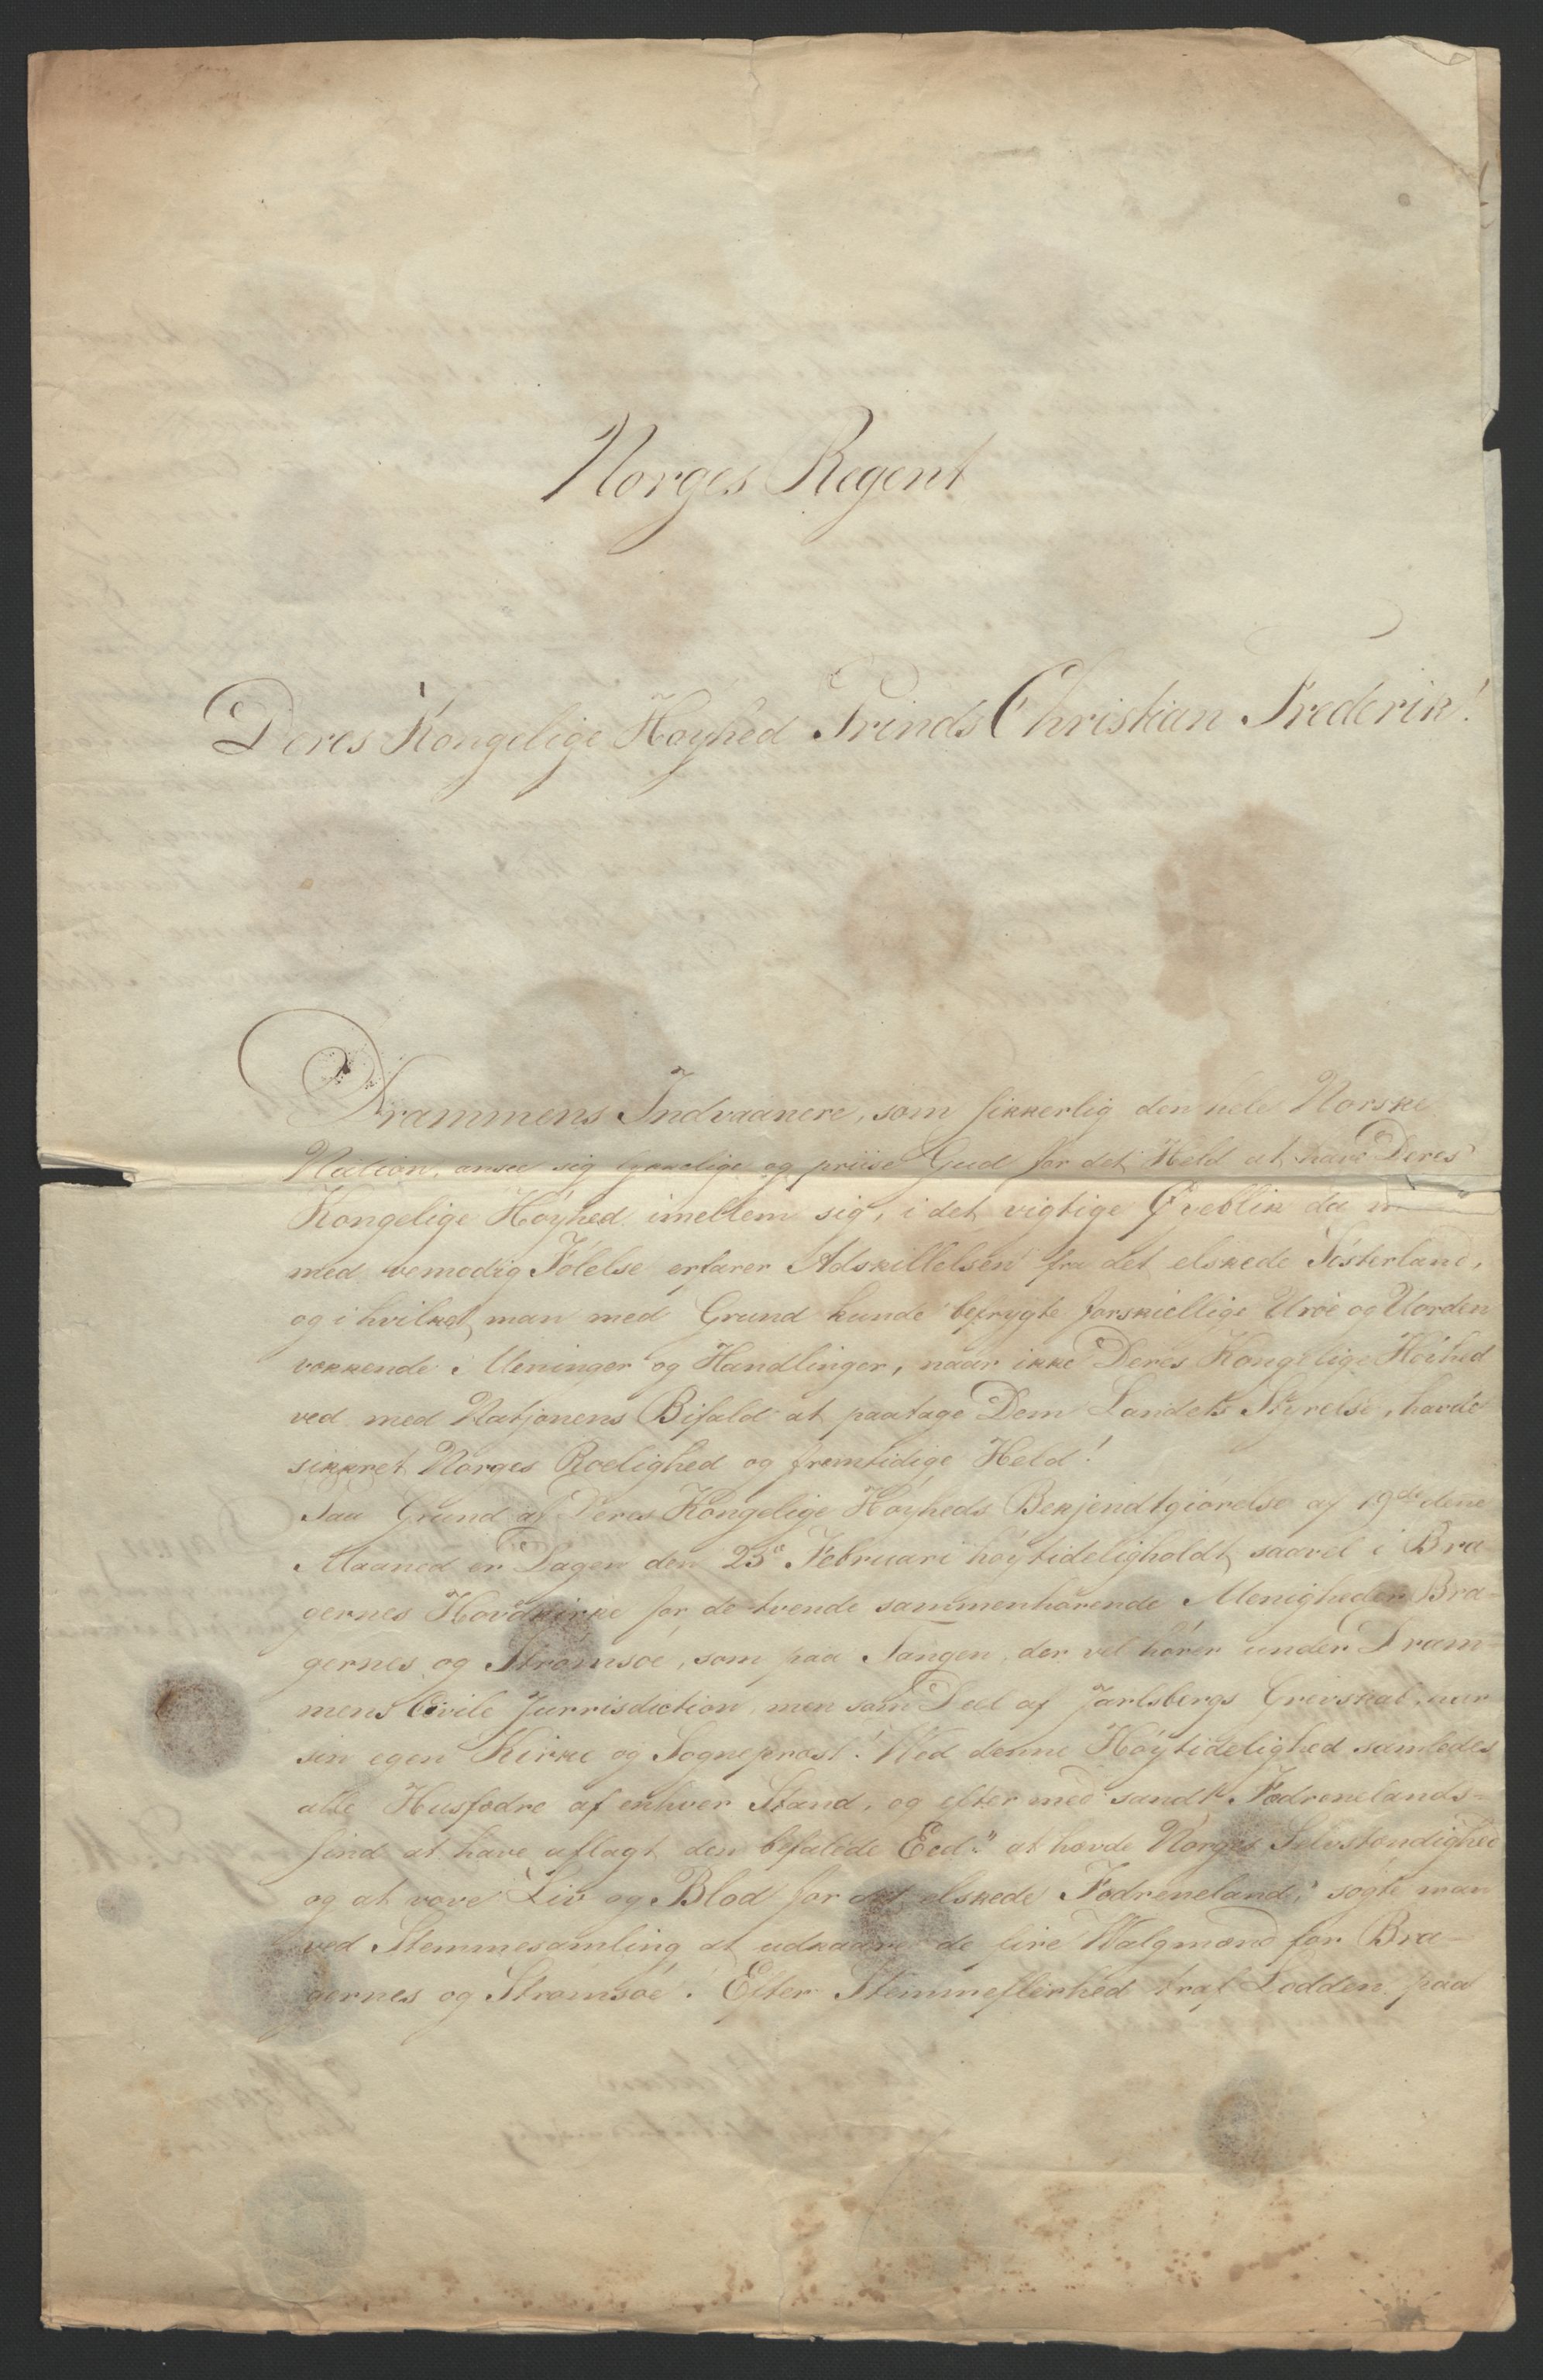 Norges Regent
Deres Kongelige Høyhed Prinds Christian Frederik!
Drammens Indvaanere, som sikkerlig den hele Norske
Nation, ansee sig lykkelige og priise Gud for det Held at have Deres
Kongelige Høyhed imellem sig, i det vigtige Øyeblik da
med vemodig Følelse erfarer Adskillelsen fra det elskede Søsterland,
og i hvilket man med Grund kunde befrygte forskiellige Uroe og Uorden
vækkende Meninger og Handlinger, naar ikke Deres Kongelige Høihed
ved med Natjonens Bifald at paatage Dem Landets Styrelse, havde
sikkret Norges Roelighed og fremtidige Held!
Paa Grund af Deres Kongelige Høyheds Bekjendtgiørelse af 19de dene
Maaned er Dagen den 25e Februari høytideligholdt saavel i Bra-
gernes Hovdkirke for de tvende sammenhørende Menigheder Bra-
gernes og Strømsøe, som paa Tangen, der vel hører under Dram-
mens Civile Jurrisdiction, men som Deel af Jarlsbergs Grevskab, har
sin egen Kirke og Sogneprest. Ved denne Høytidelighed samledes
alle Husfædre af enhver Stand, og efter med sandt Fædrenelands-
sind at have aflagt den befalede Eed: "at hævde Norges Selvstændighed
og at vove Liv og Blod for det elskede Fædreneland," søgte man
ved Stemmesamling at udkaare de fire Valgmænd for Bra-
gernes og Strømsøe. Efter Stemmeflerhed traf Lodden paa